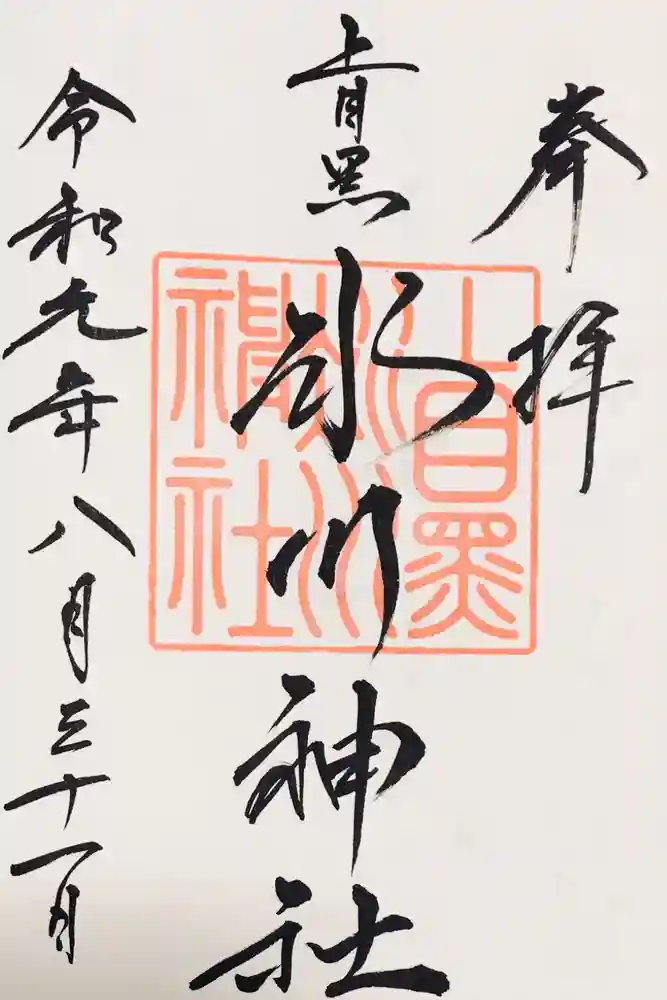 奉拝
上目黒
氷川神社
上目黒氷川神社
令和元年八月三十一日